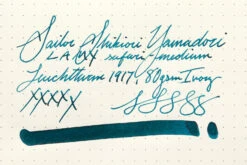 Sailor Shikiori Yamadori
LAMY safari medium
Leuchtturm 1917, 80gsm Ivory
XXXXX